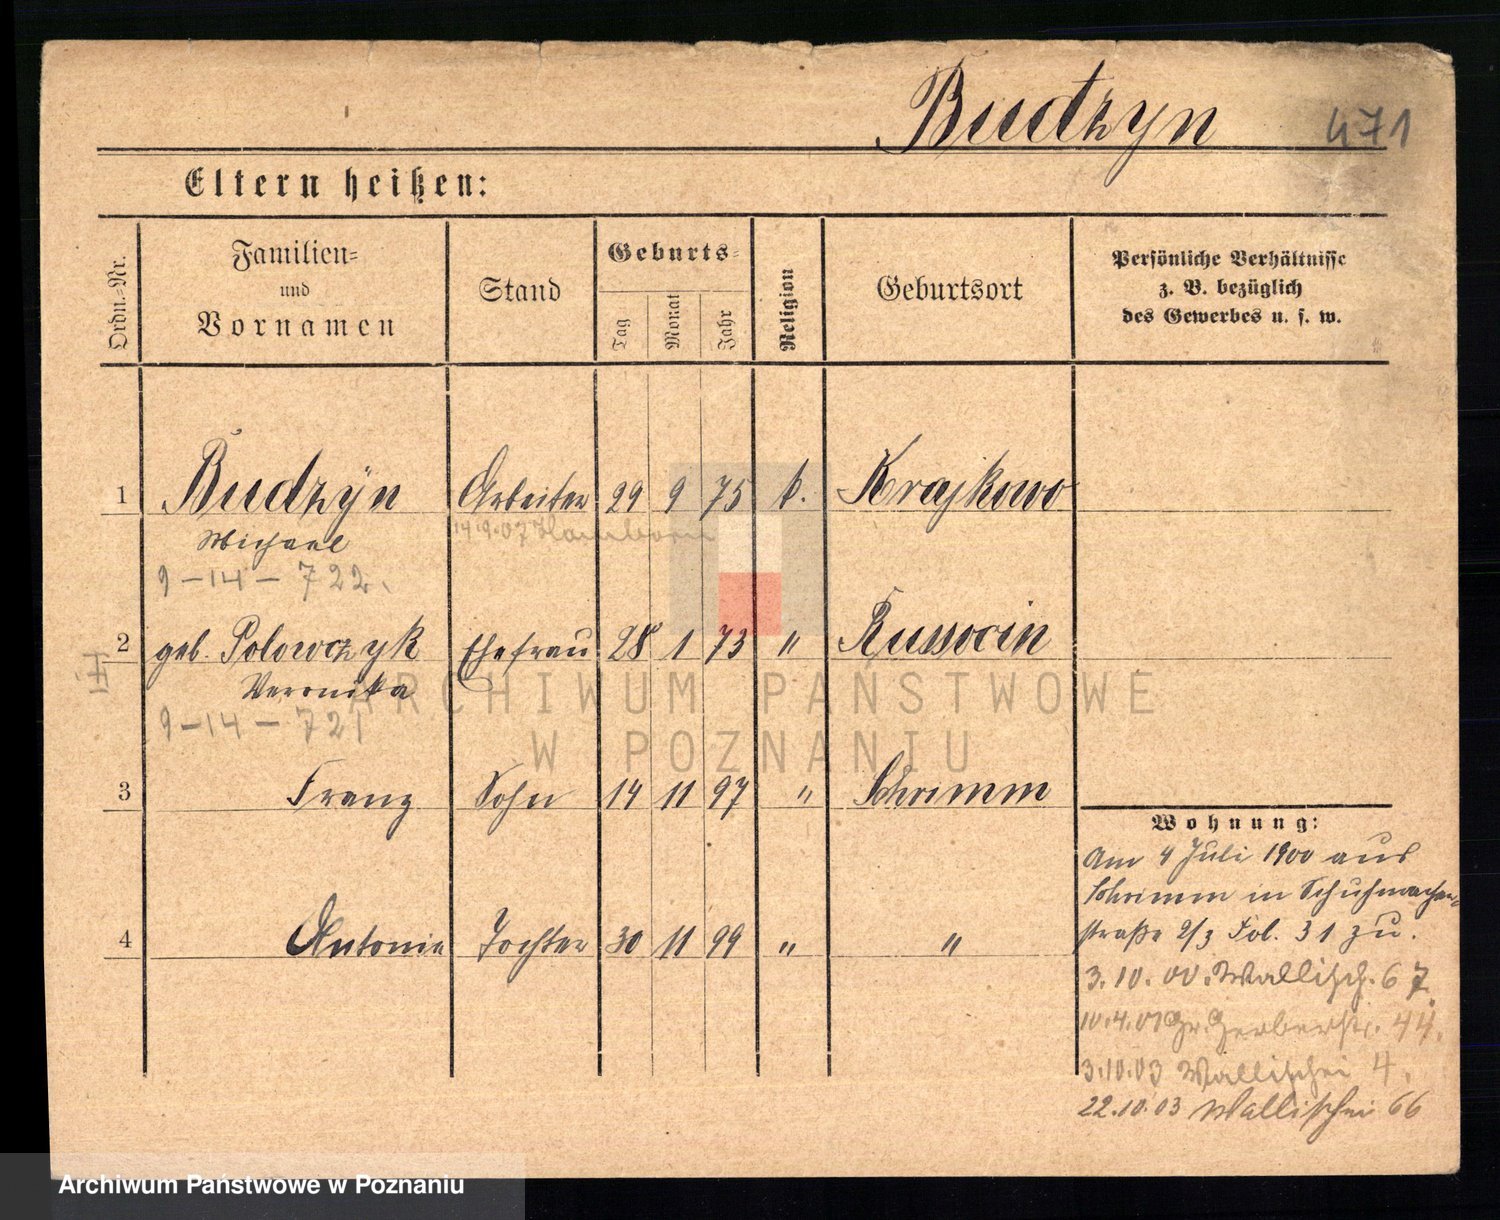 Budzyn 471
Eltern heißen:
Ordn.-Nr.
Familien-
und
Vornamen
Stand
Geburts-
Tag
Monat
Jahr
Religion
Geburtsort
Persönliche Verhältnisse
z. B. bezüglich
des Gewerbes u. s. w.
1 Budzÿn Arbeiter 29 9 75 k. Krajkowo
Michael 14.9.07 Hamborn
9-14-722.
2 geb. Polowczyk Ehefrau 28 1 73 " Russocin
Veronika
9-14-721
3 Franz Sohn 14 11 97 " Schrimm
4 Antonie Tochter 30 11 99 " "
Wohnung:
Am 4 Juli 1900 aus
Schrimm in Schuhmacher-
straße 2/3 Fol. 31 zu.
3.10.00. Wallisch. 67.
10.4.01 Gr. Gerberstr. 44.
3.10.03 Wallischei 4.
22.10.03 Wallischei 66
ARCHIWUM PAŃSTWOWE
W POZNANIU
Archiwum Państwowe w Poznaniu